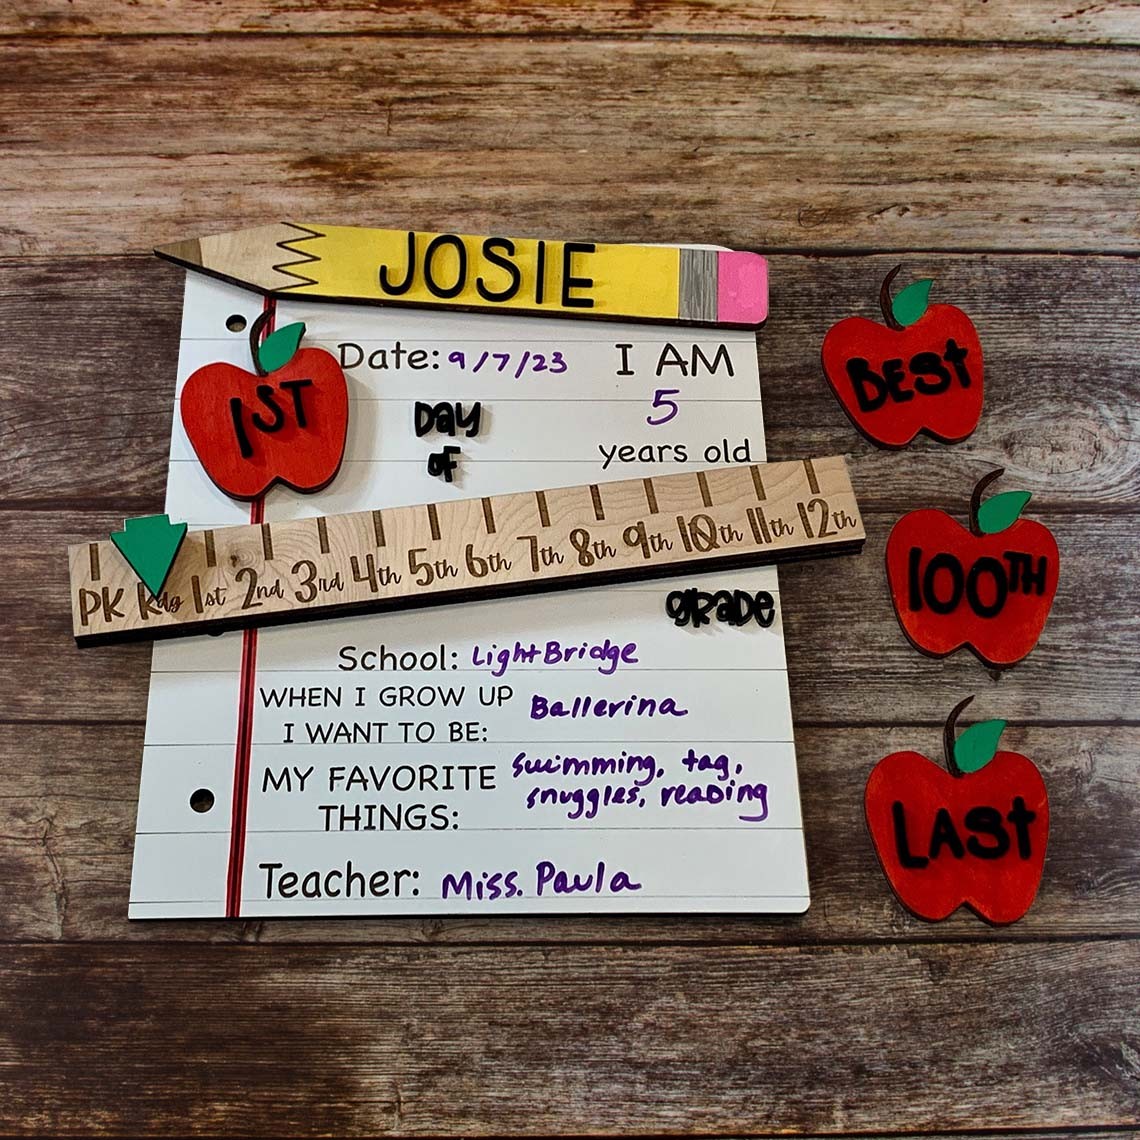 JOSIE
1ST
Date: 9/7/23
I AM
5
years old
Day
of
PK Kdg 1st 2nd 3rd 4th 5th 6th 7th 8th 9th 10th 11th 12th
grade
School: LightBridge
WHEN I GROW UP
I WANT TO BE: Ballerina
MY FAVORITE
THINGS: swimming, tag,
snuggles, reading
Teacher: Miss. Paula
BEST
100TH
LASt